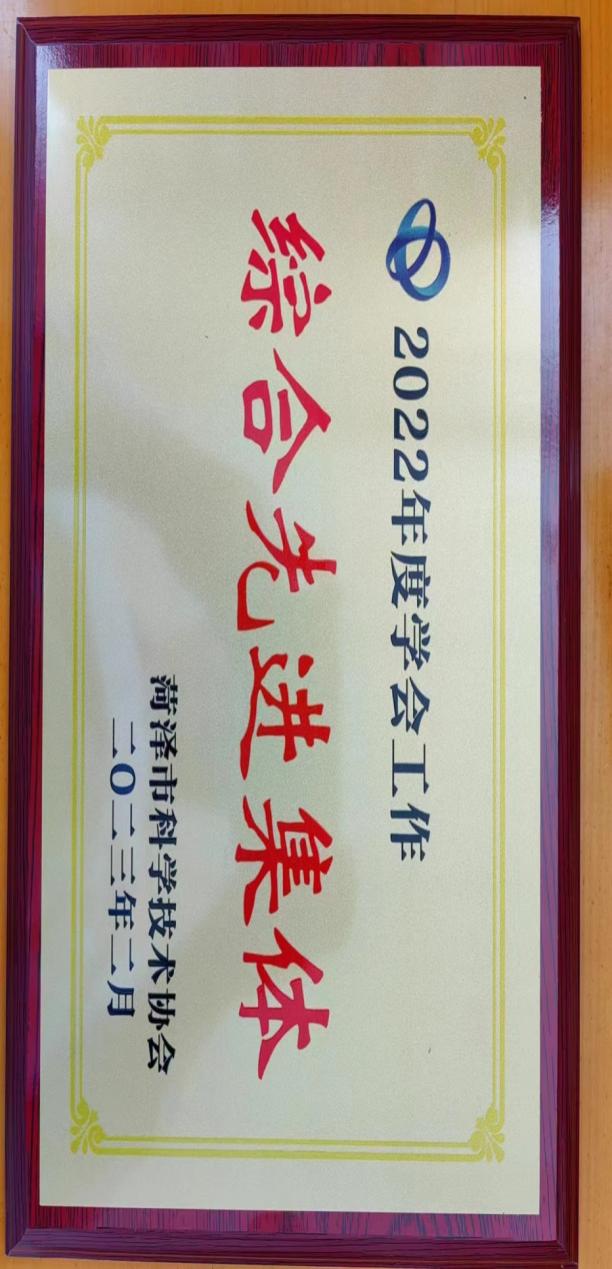 2022年度学会工作
综合先进集体
菏泽市科学技术协会
二〇二三年二月